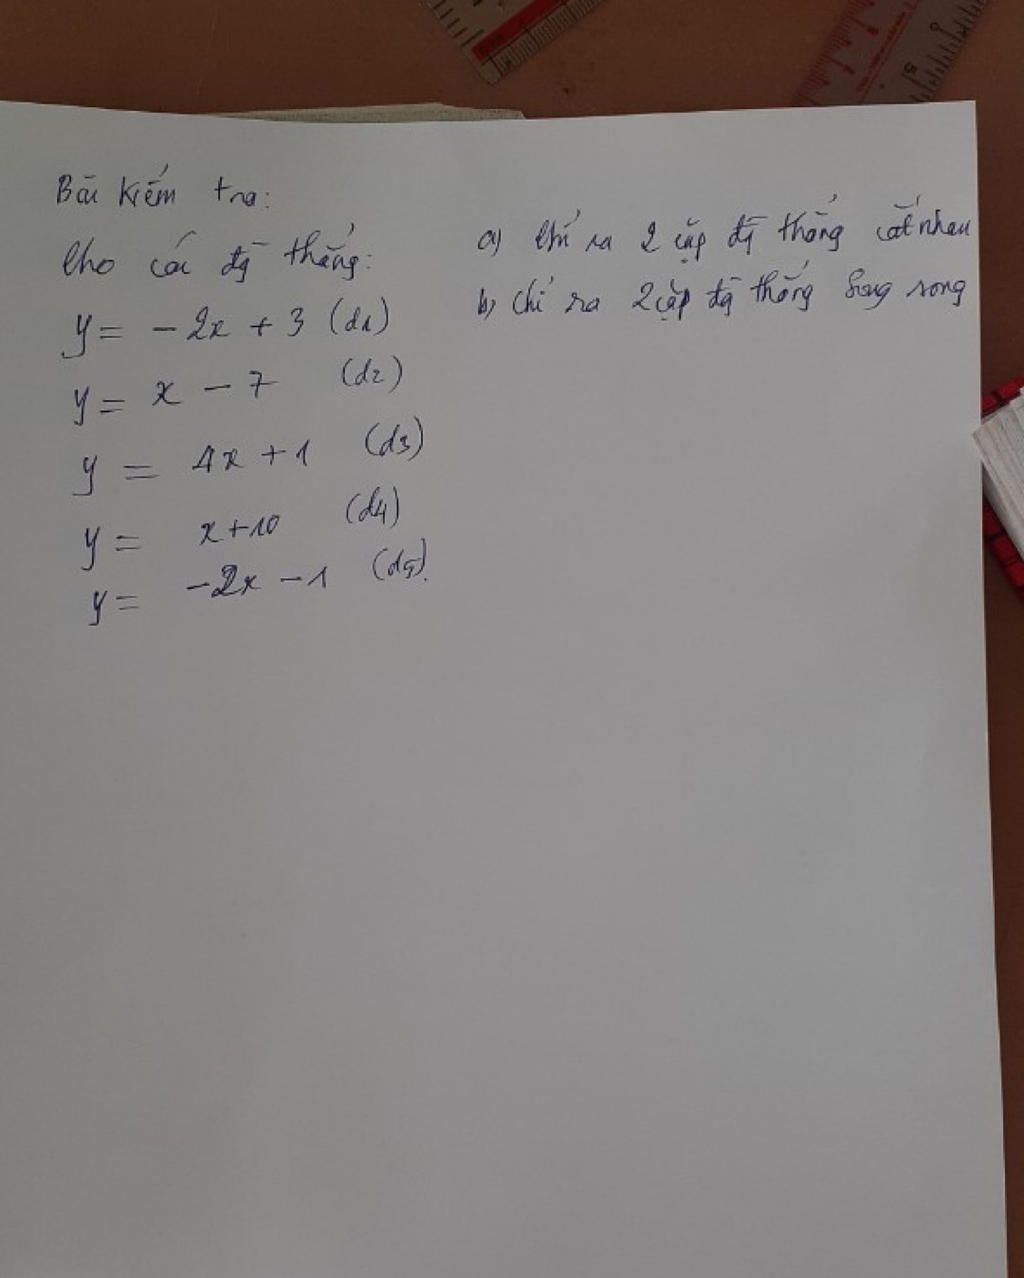 Bài kiểm tra:
Cho các đg thẳng:
y = -2x + 3 (d1)
y = x - 7 (d2)
y = 4x + 1 (d3)
y = x + 10 (d4)
y = -2x - 1 (d5).
a) Chỉ ra 2 cặp đg thẳng cắt nhau
b) Chỉ ra 2 cặp đg thẳng song song